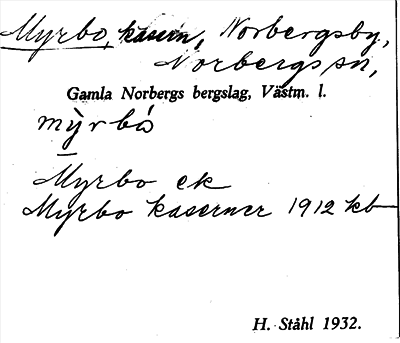 Myrbo, kasern, Norbergsby,
Norbergs sn,
Gamla Norbergs bergslag, Västm. l.
mỳrbó
Myrbo ek
Myrbo kaserner 1912 kb
H. Ståhl 1932.